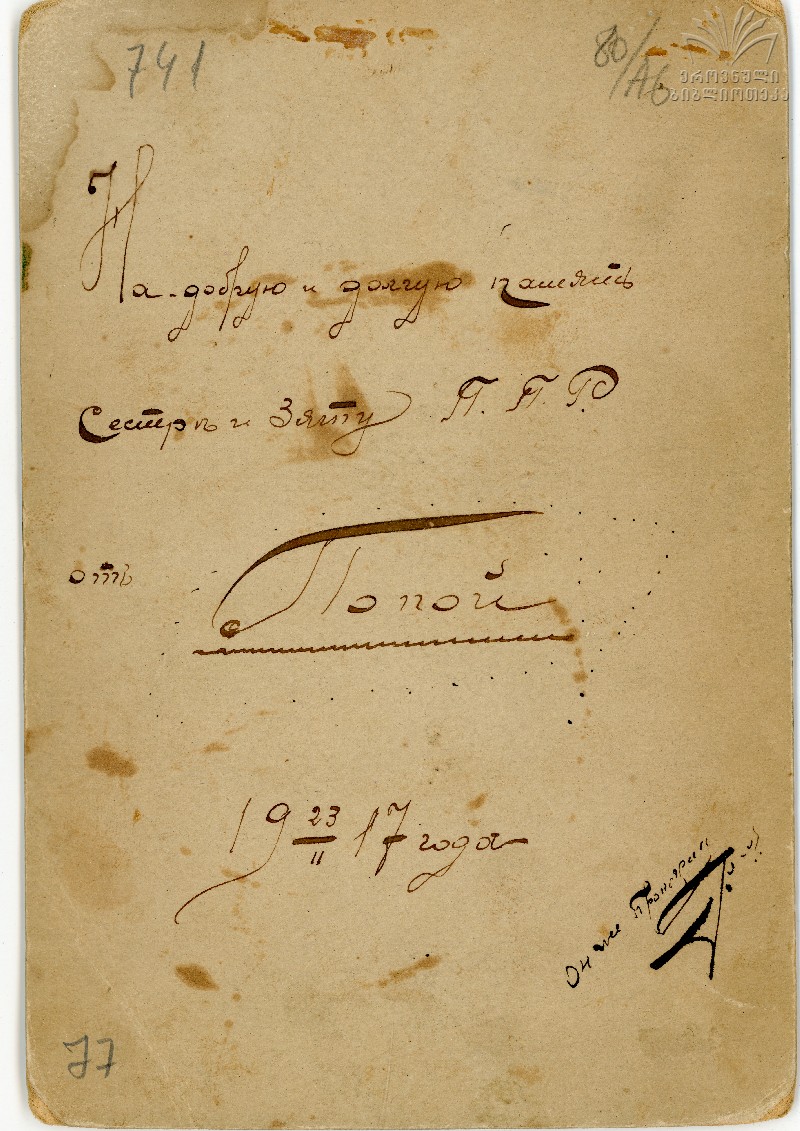 741
80/А6
ეროვნული
ბიბლიოთეკა
На-добрую и долгую память
Сестрѣ и Зятю П. П. Р.
отъ
Попой
19 23/II 17 года
Он же
77